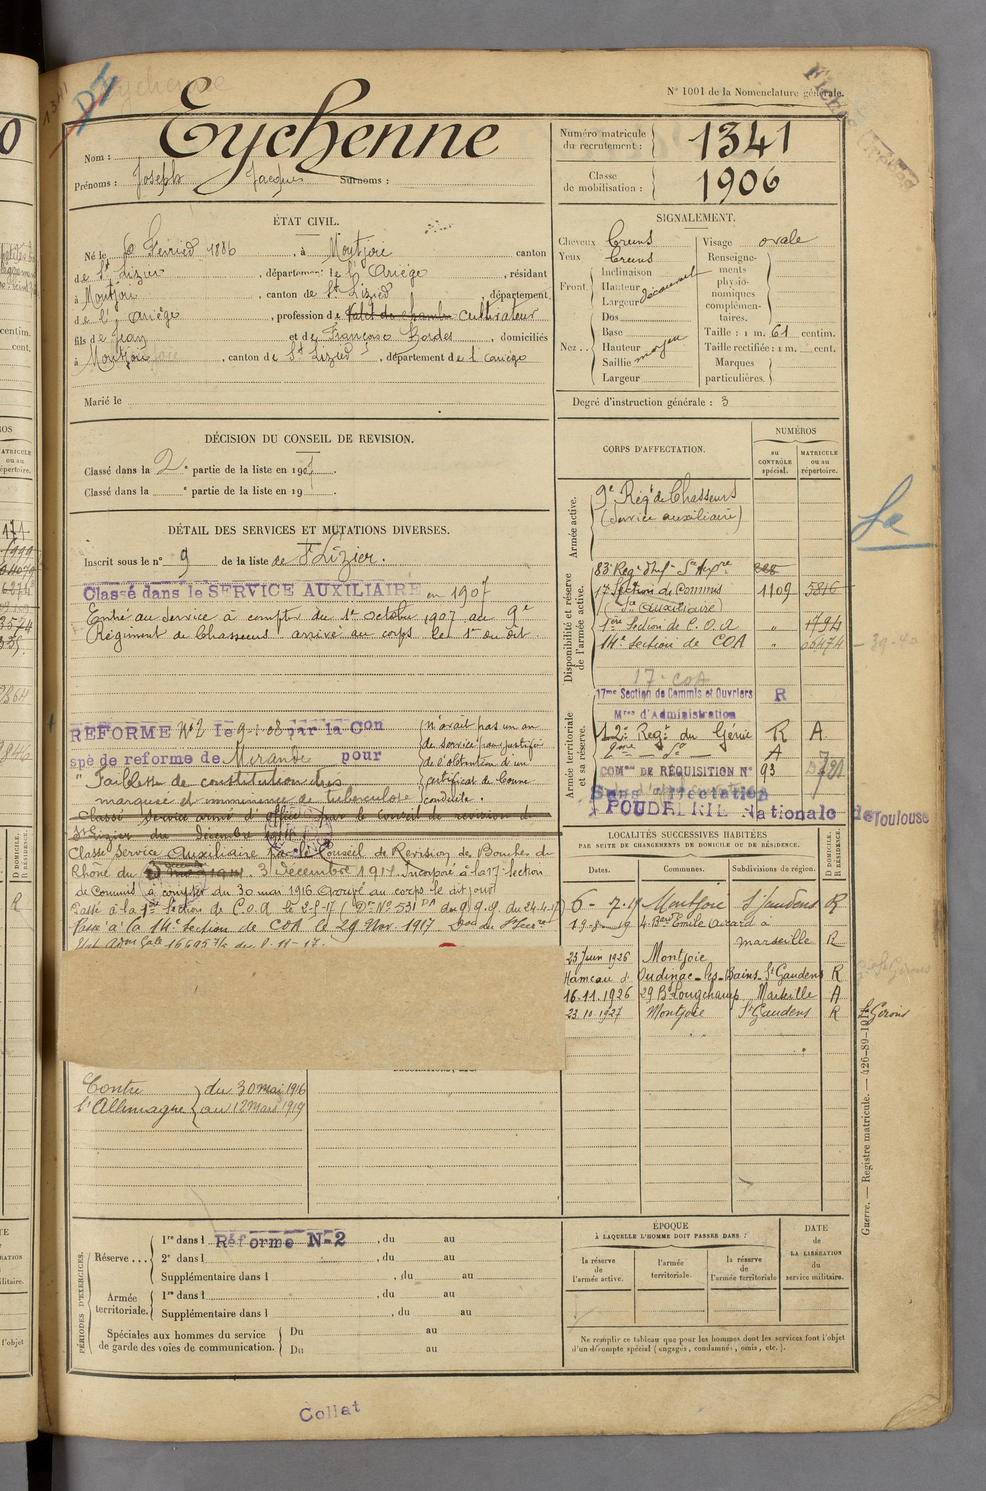 N° 1001 de la Nomenclature générale.
Eychenne
Nom :
Prénoms : Joseph Jacques Surnoms :
Numéro matricule du recrutement : 1341
Classe de mobilisation : 1906
ÉTAT CIVIL.
Né le 6 Février 1886, à Montjoie canton
de St Lizier, département de l'Ariège, résidant
à Montjoie, canton de St Lizier, département
de l'Ariège, profession de valet de chambre cultivateur
fils de Jean et de Françoise Bordes, domiciliés
à Montjoie, canton de St Lizier, département de l'Ariège
Marié le
SIGNALEMENT.
Cheveux bruns
Yeux bruns
Front. Inclinaison
Hauteur découvert
Largeur
Nez .. Dos
Base
Hauteur moyen
Saillie
Largeur
Visage ovale
Renseignements physionomiques complémentaires.
Taille : 1 m. 61 centim.
Taille rectifiée : 1 m. cent.
Marques particulières.
Degré d'instruction générale : 3
DÉCISION DU CONSEIL DE REVISION.
Classé dans la 2e partie de la liste en 1907.
Classé dans la e partie de la liste en 19 .
DÉTAIL DES SERVICES ET MUTATIONS DIVERSES.
Inscrit sous le n° 9 de la liste de St Lizier.
Classé dans le SERVICE AUXILIAIRE en 1907
Entré au service à compter du 1er octobre 1907 au 9e
Régiment de Chasseurs arrivé au corps le 1er du dit
REFORME N°2 le 9-1-08 par la Con
spé de reforme de Mirande pour
" Faiblesse de constitution très
marquée et imminence de tuberculose
(n'avait pas un an
de service pour justifier
de l'obtention d'un
certificat de bonne
conduite.
Classé Service armé d'office par le conseil de revision de
St Lizier du décembre 1914
Classé Service Auxiliaire par le Conseil de Revision des Bouches du
Rhône du 3 décembre 1914. Incorporé à la 17e section
de Commis à compter du 30 mai 1916. Arrivé au corps le dit jour
Passé à la 1ère Section de C.O.A le 2-5-17 (Don N° 531 DA du G.Q.G. du 24-4-17)
Passé à la 14e Section de COA le 29 Nov. 1917
Contre l'Allemagne
du 30 mai 1916
au 12 Mars 1919
CORPS D'AFFECTATION.
NUMÉROS
au CONTRÔLE spécial.
MATRICULE ou au répertoire.
Armée active.
9e Régt de Chasseurs
(Service auxiliaire)
Disponibilité et réserve de l'armée active.
17e Section de Commis 1109 5816
(Sce Auxiliaire)
1ère Section de C.O.A "
14e Section de COA "
17e COA
17me Section de Commis et Ouvriers R
Mres d'Administration
Armée territoriale et sa réserve.
Régt du Génie R A
A
COMon DE RÉQUISITION N° 93
Sans affectation
POUDRERIE Nationale de Toulouse
LOCALITÉS SUCCESSIVES HABITÉES
PAR SUITE DE CHANGEMENTS DE DOMICILE OU DE RÉSIDENCE.
Dates. Communes. Subdivisions de région. D DOMICILE. R RÉSIDENCE.
Montjoie St Gaudens R
Marseille R
23 Juin 1926 Montjoie
Hameau d' Oudinac-les-Bains St Gaudens R
16.11.1926 29 Bd Longchamp Marseille A
23.10.1927 Montjoie St Gaudens R St Girons
PÉRIODES D'EXERCICES.
Réserve ... 1re dans l Réforme N-2, du au
2e dans l , du au
Supplémentaire dans l , du au
Armée territoriale. 1re dans l , du au
Supplémentaire dans l , du au
Spéciales aux hommes du service de garde des voies de communication. Du au
Du au
ÉPOQUE
À LAQUELLE L'HOMME DOIT PASSER DANS :
la réserve de l'armée active.
l'armée territoriale.
la réserve de l'armée territoriale
DATE de LA LIBÉRATION du service militaire.
Ne remplir ce tableau que pour les hommes dont les services font l'objet
d'un décompte spécial (engagés, condamnés, omis, etc.).
Guerre. — Registre matricule. — 426-89-19
Collat